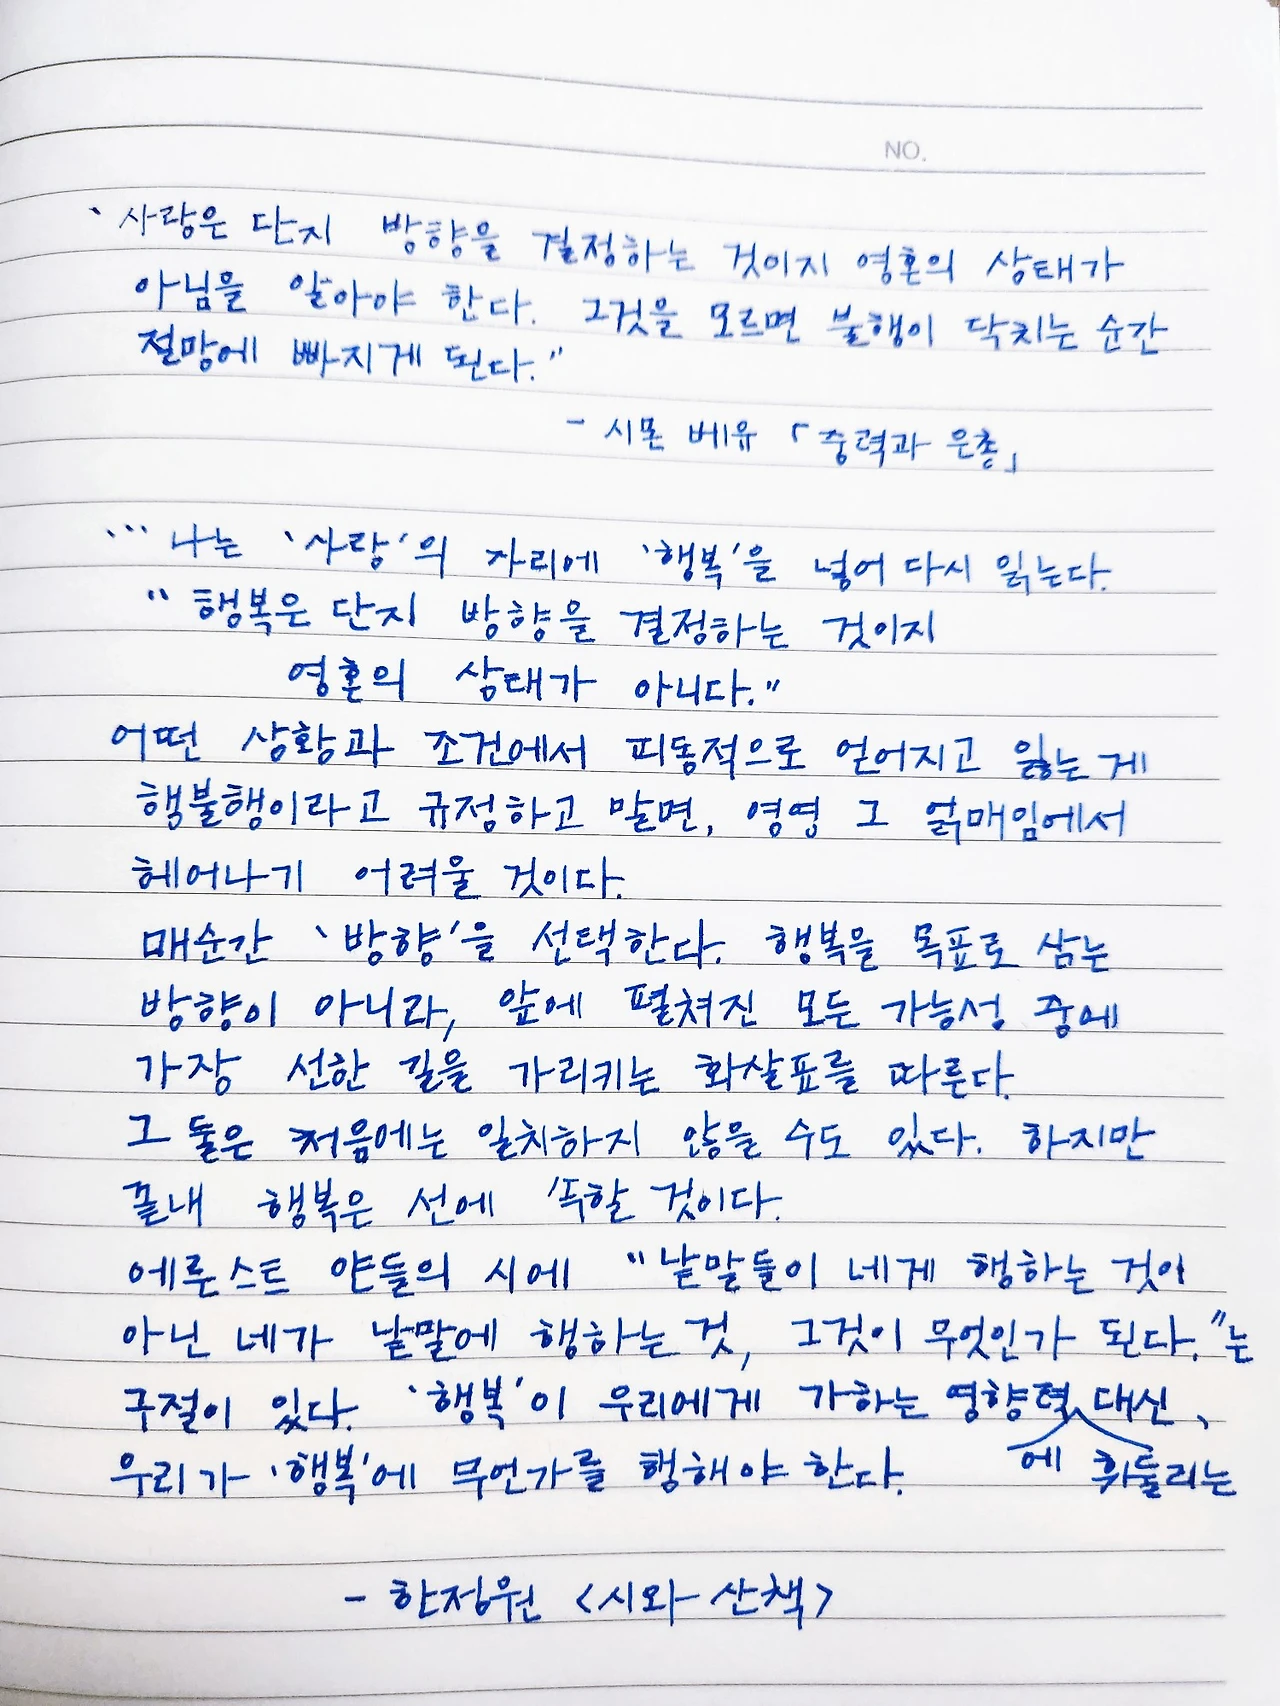 NO.
‵사랑은 단지 방향을 결정하는 것이지 영혼의 상태가
아님을 알아야 한다. 그것을 모르면 불행이 닥치는 순간
절망에 빠지게 된다."
- 시몬 베유 「중력과 은총」
… 나는 '사랑'의 자리에 '행복'을 넣어 다시 읽는다.
"행복은 단지 방향을 결정하는 것이지
영혼의 상태가 아니다."
어떤 상황과 조건에서 피동적으로 얻어지고 잃는 게
행불행이라고 규정하고 말면, 영영 그 얽매임에서
헤어나기 어려울 것이다.
매순간 '방향'을 선택한다. 행복을 목표로 삼는
방향이 아니라, 앞에 펼쳐진 모든 가능성 중에
가장 선한 길을 가리키는 화살표를 따른다.
그 둘은 처음에는 일치하지 않을 수도 있다. 하지만
끝내 행복은 선에 속할 것이다.
에른스트 얀들의 시에 "낱말들이 네게 행하는 것이
아닌 네가 낱말에 행하는 것, 그것이 무엇인가 된다."는
구절이 있다. '행복'이 우리에게 가하는 영향력 대신,
에 휘둘리는
우리가 '행복'에 무언가를 행해야 한다.
- 한정원 <시와 산책>